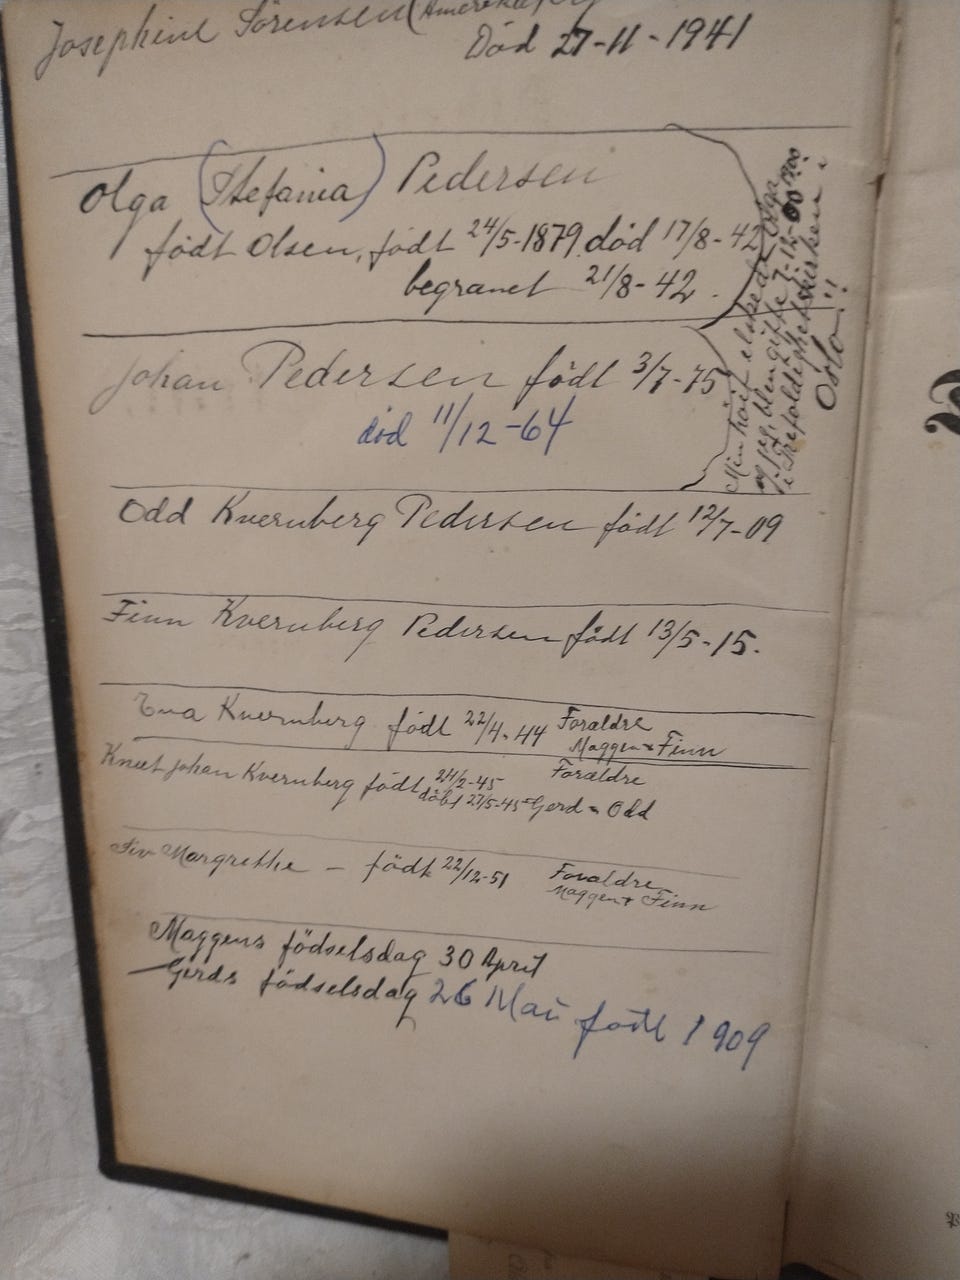 Josephine Sörensen (Amerika)
Död 27-11-1941
Olga (Stefania) Pedersen
födt Olsen, födt 24/5-1879. död 17/8-42
begravet 21/8-42.
Johan Pedersen födt 3/7-75
död 11/12-64
Min höit elskede Olga
og jeg, blev gifte 7-12-00 1900
i Trefoldighetskirken i
Oslo!!
Odd Kvernberg Pedersen födt 12/7-09
Finn Kvernberg Pedersen födt 13/5-15.
Eva Kvernberg födt 22/4-44 Foraldre
Maggen & Finn
Knut Johan Kvernberg födt 24/2-45 Foraldre
döbt 27/5-45 Gerd & Odd
Siv Margrethe – födt 22/12-51 Foraldre
Maggen & Finn
Maggens födselsdag 30 April
Gerds födselsdag 26 Mai födt 1909